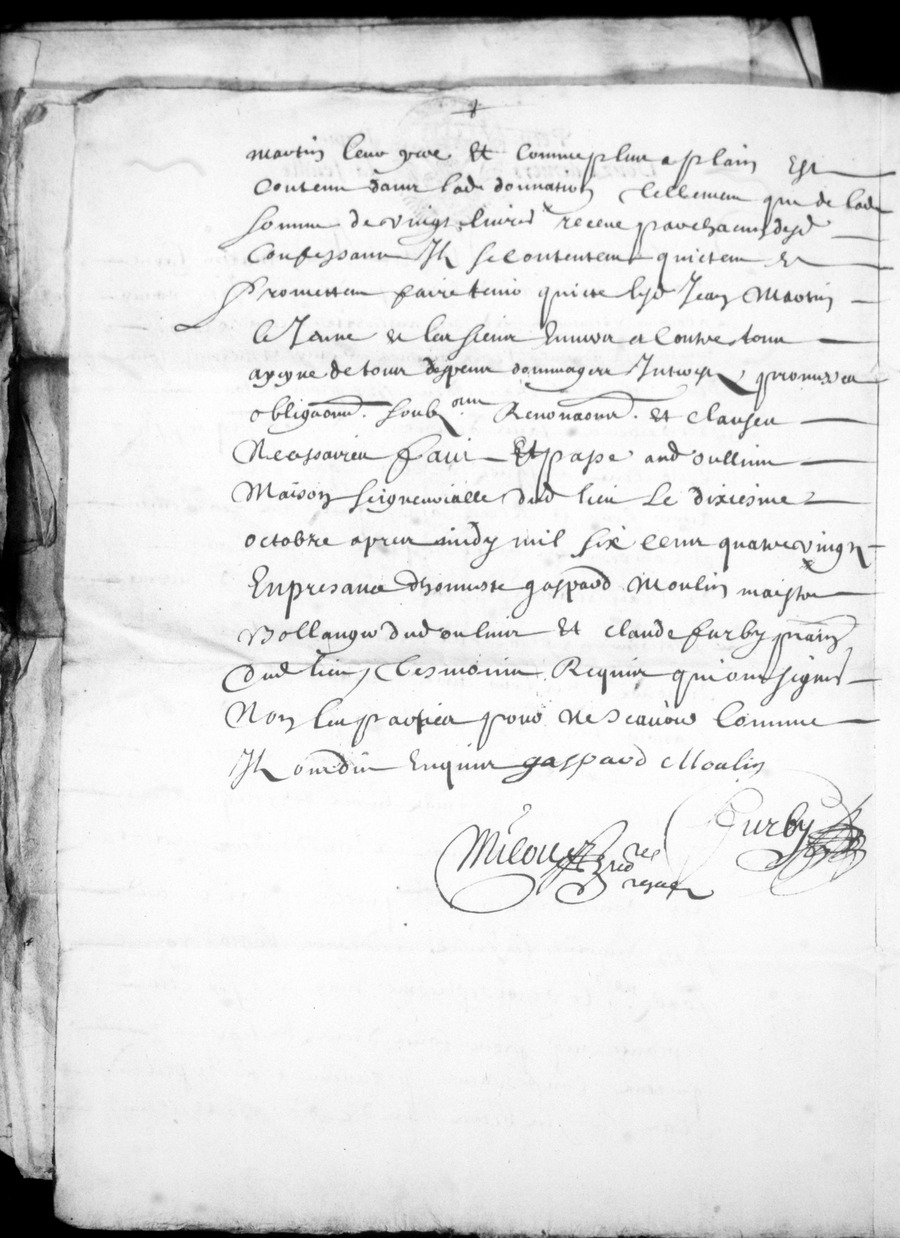 martin leur pere Et comme plus a plain Est
Contenu dans lad donnation tellement que de lad
somme de vingt livres receue par chacun desd
Confessants Ilz se contentent quictent Et
Promettent faire tenir quicte led Jean Martin
le Jeune et les siens Envers et Contre tous
a peyne de tous despens dommages Interestz promesses
obligaons soubzons Renonaons et clauses
Necessaires fait Et passe aud oullins
Maison seigneurialle dud lieu Le dixiesme
octobre apres midy mil six cent quatre vingtz
En presance d'honneste gaspard Moulin maistre
Bollanger dud oulins Et claude furby
dud lieu tesmoins Requis qui ont signé
Non les parties pour ne scavoir comme
Ilz ont dit Enquis gaspard Moulin
furby